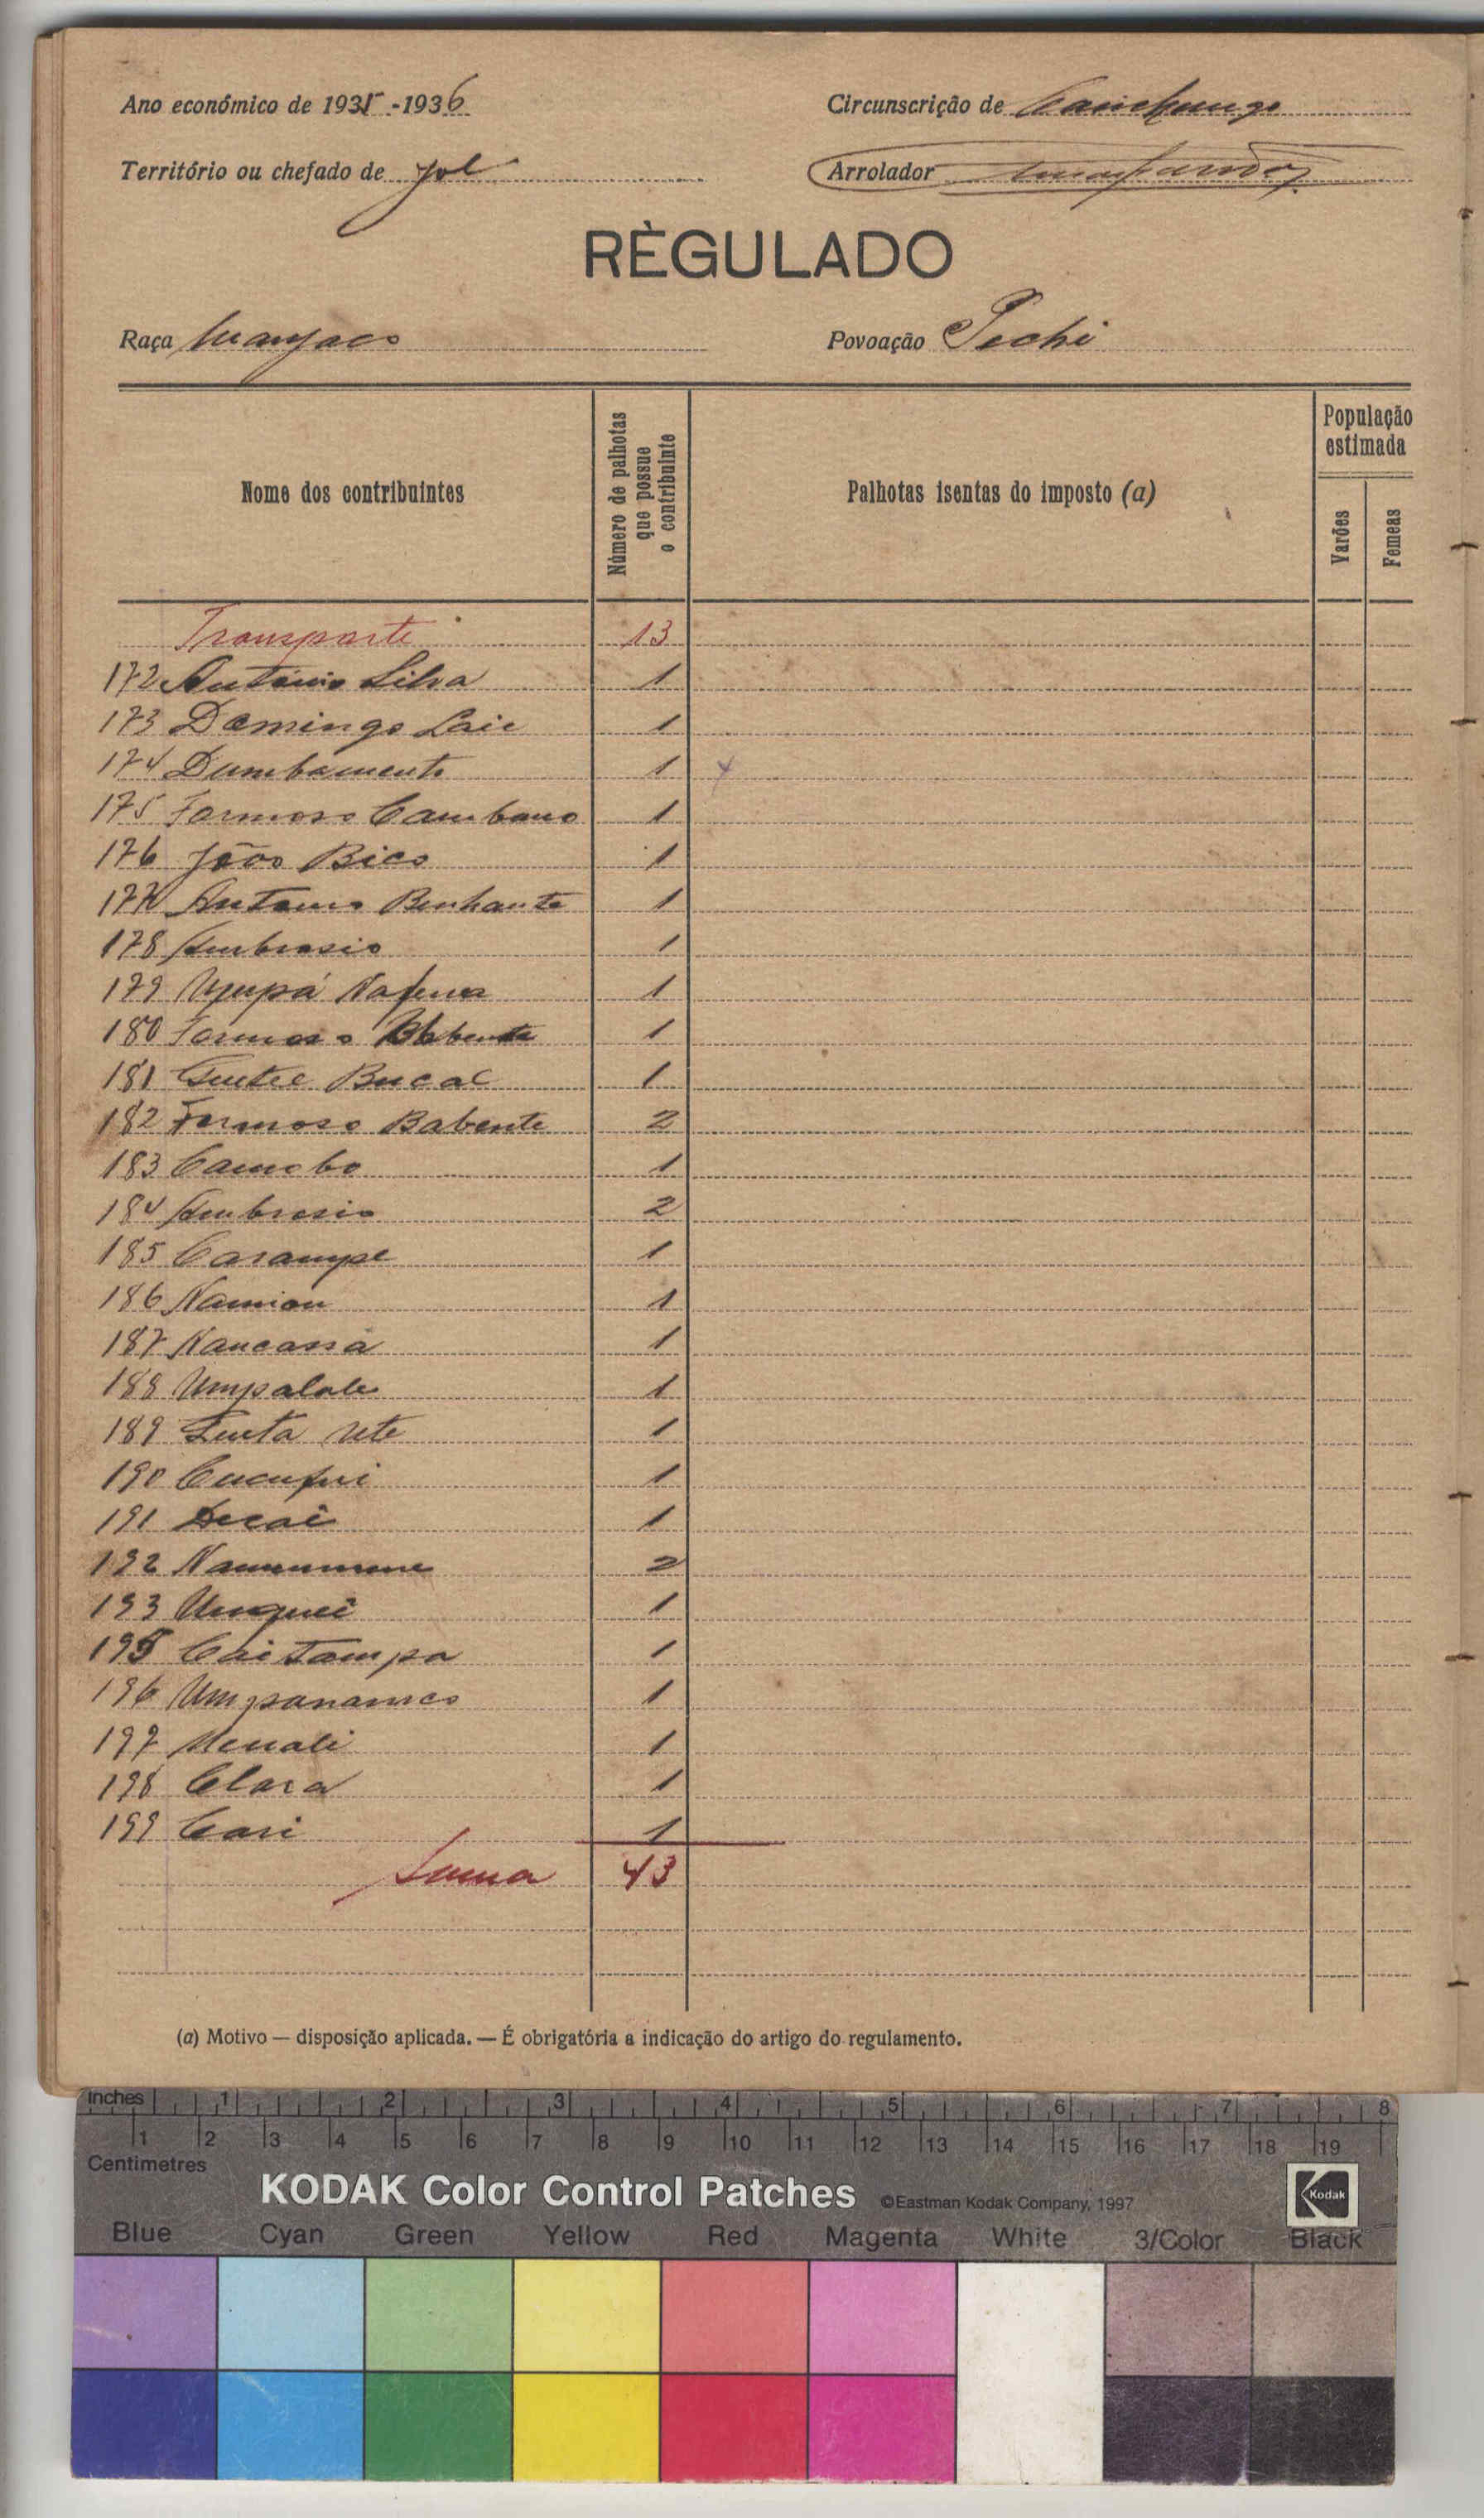 Ano económico de 1935-1936
Circunscrição de Canchungo
Território ou chefado de Jol
Arrolador
RÈGULADO
Raça Manjaco
Povoação Pechi
Nome dos contribuintes
Número de palhotas que possue o contribuinte
Palhotas isentas do imposto (a)
População estimada
Varões
Femeas
Transporte 13
172 António Silva 1
173 Domingo Laie 1
174 Dumbamento 1
175 Formoso Cambano 1
176 João Bico 1
177 Antonio Benhante 1
178 Ambrosio 1
179 Upupá Nafena 1
180 Formoso 1
181 Bucal 1
182 Formoso Babente 2
183 Camobo 1
184 Ambrosio 2
185 Carampe 1
186 Namion 1
187 Nancassa 1
188 Umpalale 1
189 1
190 Cucufui 1
191 Decai 1
192 2
193 1
195 Caitampa 1
196 1
197 1
198 Clara 1
199 Cari 1
Soma 43
(a) Motivo — disposição aplicada. — É obrigatória a indicação do artigo do regulamento.
Inches 1 2 3 4 5 6 7 8
1 2 3 4 5 6 7 8 9 10 11 12 13 14 15 16 17 18 19
Centimetres
KODAK Color Control Patches ©Eastman Kodak Company, 1997 Kodak
Blue Cyan Green Yellow Red Magenta White 3/Color Black